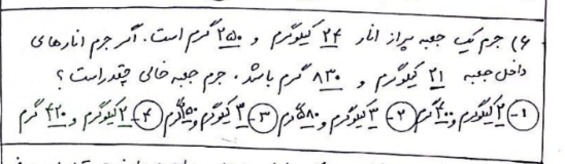 ۱۶) جرم یک جعبه پر از انار ۲۴ کیلوگرم و ۲۵۰ گرم است. اگر جرم انارهای
داخل جعبه ۲۱ کیلوگرم و ۸۳۰ گرم باشد. جرم جعبه خالی چقدر است؟
۱- ۲ کیلوگرم و ۴۰۰ گرم ۲- ۳ کیلوگرم و ۵۸۰ گرم ۳- ۳ کیلوگرم و ۱۵۰ گرم ۴- ۲ کیلوگرم و ۴۲۰ گرم